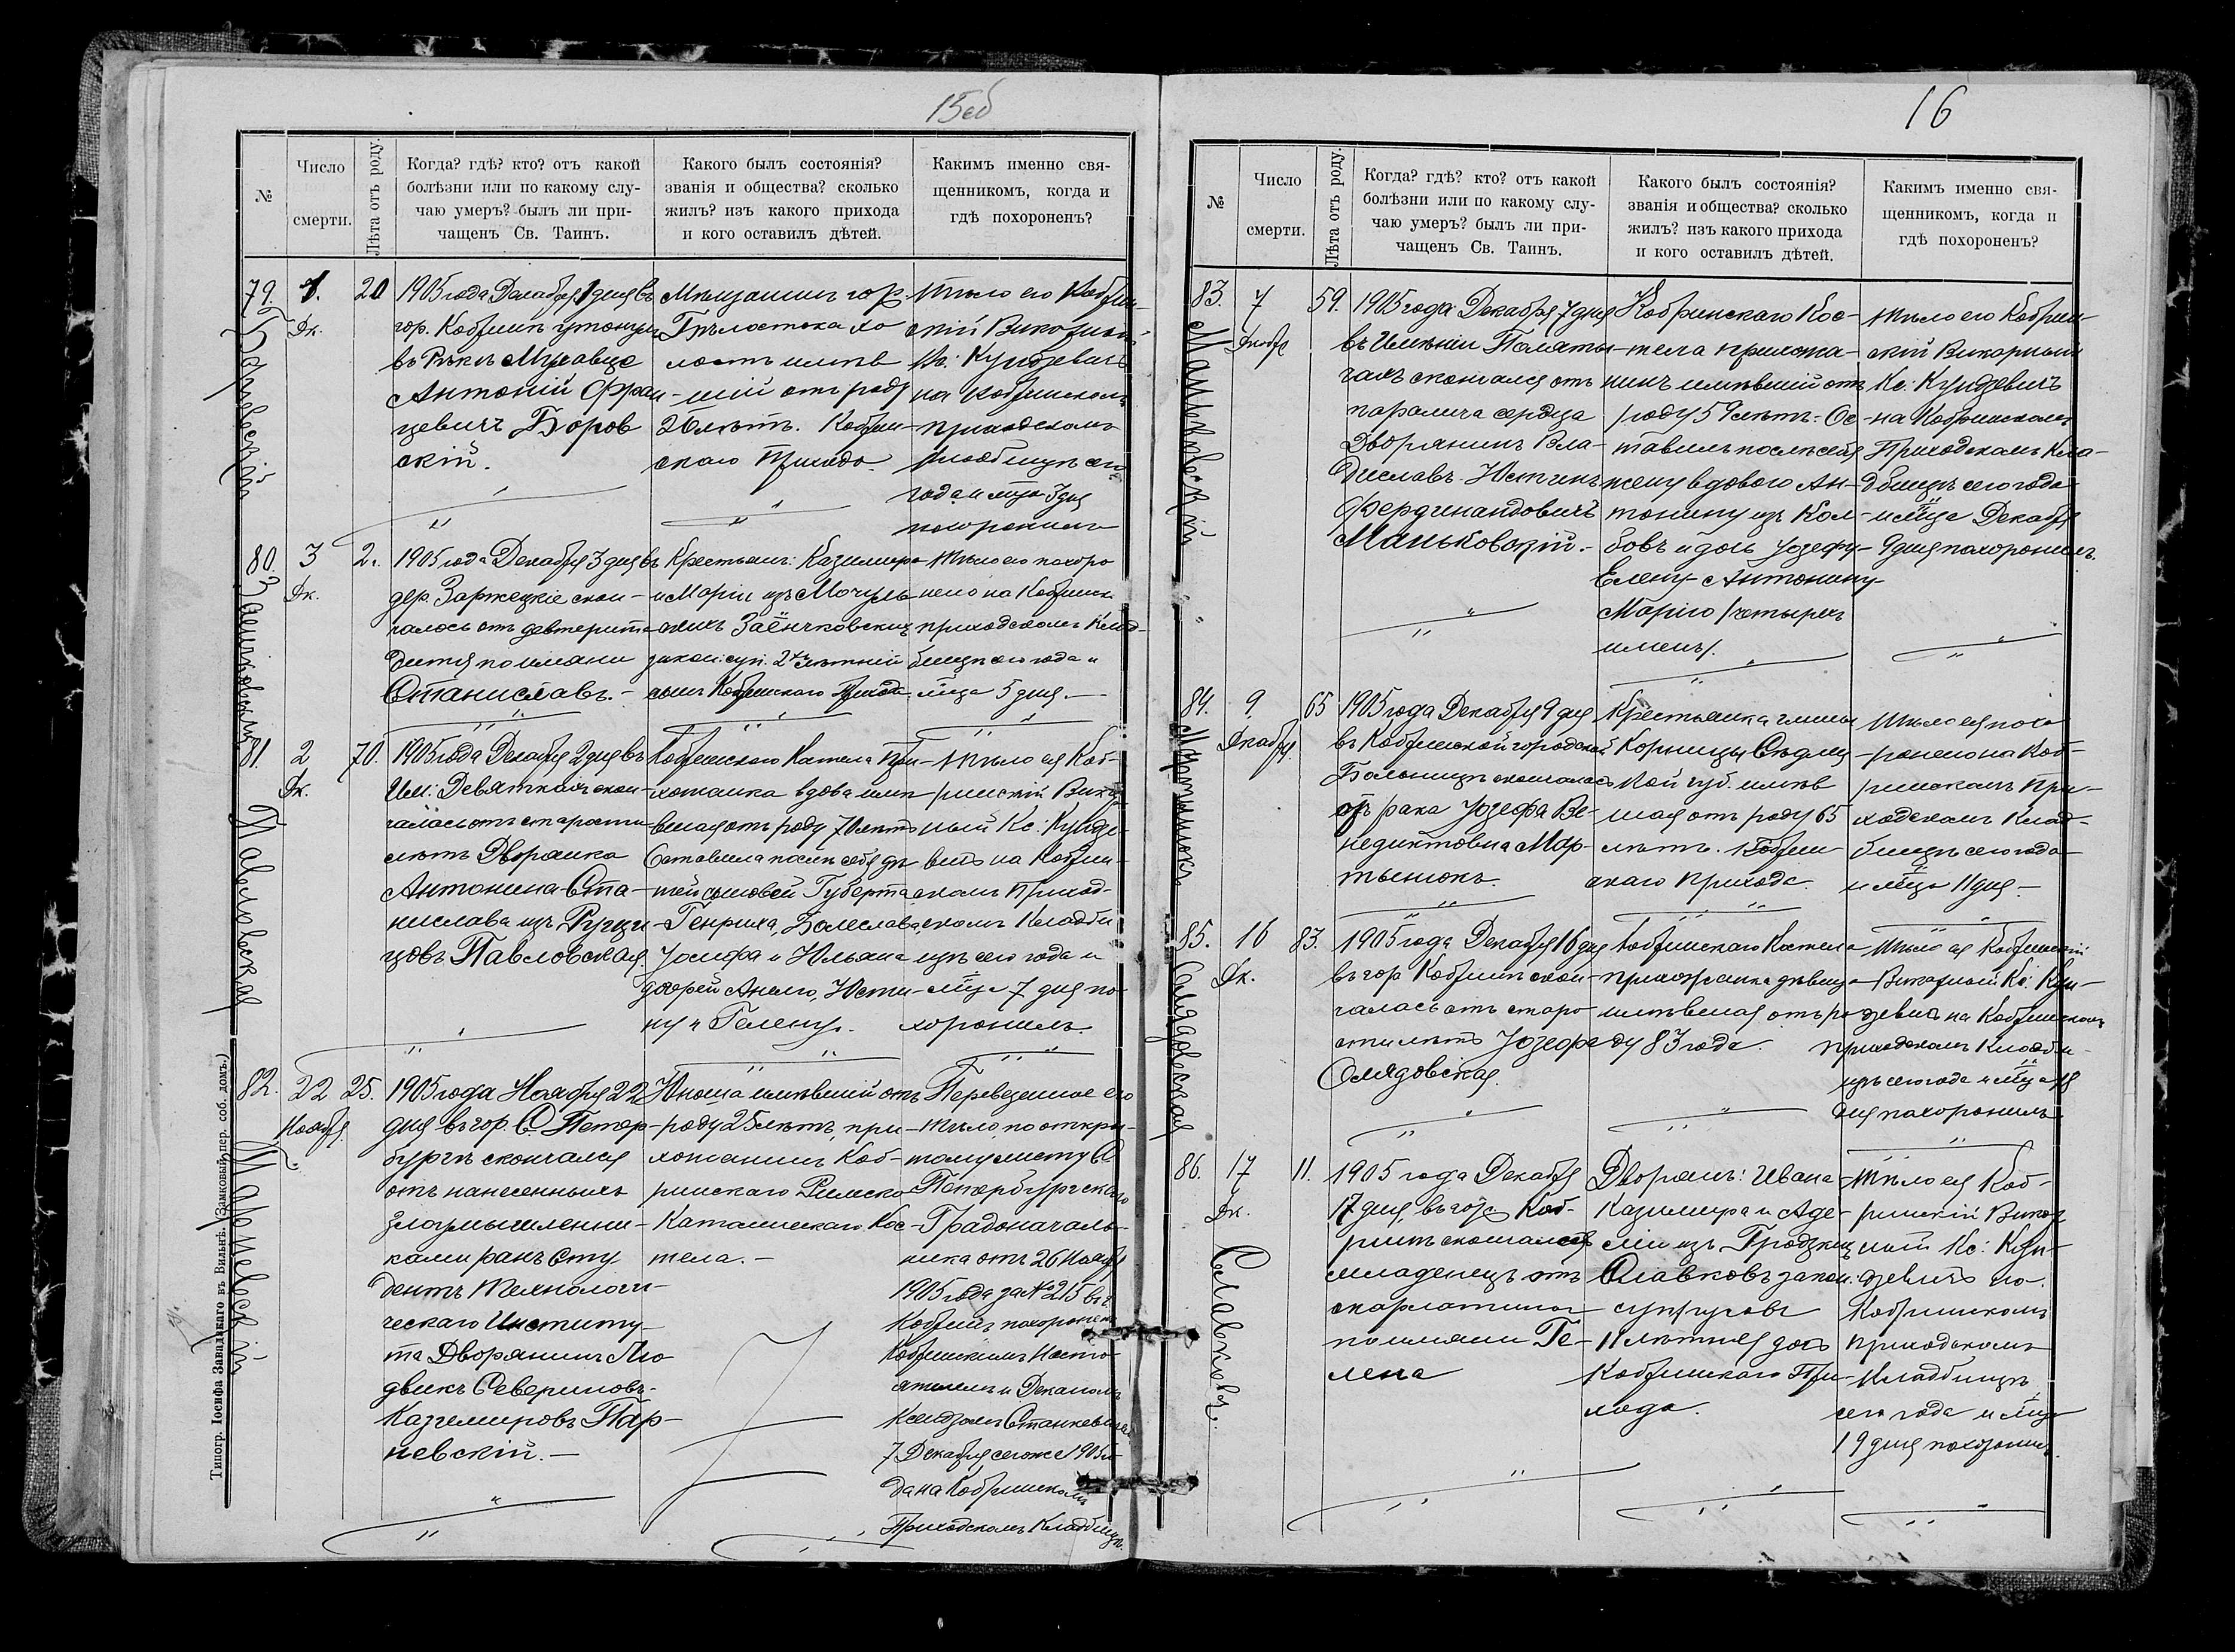 15об
№
Число
смерти.
Лѣта отъ роду.
Когда? гдѣ? кто? отъ какой
болѣзни или по какому слу-
чаю умеръ? былъ ли при-
чащенъ Св. Таинъ.
Какого былъ состоянія?
званія и общества? сколько
жилъ? изъ какого прихода
и кого оставилъ дѣтей.
Какимъ именно свя-
щенникомъ, когда и
гдѣ похороненъ?
79.
Боровскій
1.
Дк.
20
1905 года Декабря 1 дня въ
гор. Кобринѣ утонулъ
въ Рѣкѣ Муховцѣ
Антоній Фран-
цевичъ Боров
скій.
Мѣщанинъ гор.
Бѣлостока хо
лостъ имѣв
шій отъ роду
20 лѣтъ. Кобрин-
скаго Прихода.
тѣло его Кобрин-
скій Викарный
Кс: Кундзевичъ
на Кобринскомъ
приходскомъ
кладбищѣ сего
года и мца 3 дня
похоронилъ
80.
Заёнчковскій
3
Дк.
2.
1905 года Декабря 3 дня въ
дер. Заржецкіе скон-
чалось отъ девтерита
дитя по имени
Станиславъ.-
Крестьянъ: Казимира
и Маріи изъ
скихъ Заёнчковскихъ
закон: суп. 2хъ лѣтній
сынъ Кобринскаго Прихода
тѣло его похоро
нено на Кобринск
приходскомъ Клад-
бищѣ сего года и
мца 5 дня.-
81.
Павловская
2
Дк.
70.
1905 года Декабря 2 дня въ
Им: Девяткахъ скон-
чалась отъ старости
лѣтъ Дворянка
Антонина-Ста-
нислава изъ
цовъ Павловская
Кобринскаго Костела При-
хожанка вдова имѣ
вшая отъ роду 70 лѣтъ
Оставила послѣ себя дѣ
тей сыновей Губерта
Генриха, Болеслава
Іосифа и Юльяна
дочерей Анелю, Юсти-
ну и Гелену.
тѣло ея Коб-
ринскій Викар
ный Кс: Кундзе-
вичъ на Кобрин-
скомъ Приход-
скомъ Кладби
щѣ сего года и
мца 7 дня по-
хоронилъ.
82.
22
Ноября
25.
1905 года Ноября 22
дня въ гор. С. Петер-
бургѣ скончался
отъ нанесенныхъ
злоумышленни-
ками ранъ сту
дентъ Технологи-
ческаго Институ-
та Дворянинъ Лю
двикъ Севериновъ-
Казимировъ
невскій.-
Юноша имѣвшій отъ
роду 25 лѣтъ, при-
хожанинъ Коб-
ринскаго Римско
Католическаго Кос-
тела.-
Перевезенное его
тѣло, по откры-
тому листу С
Петербургскаго
Градоначаль-
ника отъ 26 Ноября
1905 года за № 215 въ г.
Кобринъ похоронено
Кобринскимъ Насто-
ятелемъ и Деканомъ
Ксендзомъ Станкевичемъ
7 Декабря сего же 1905 го
да на Кобринскомъ
Приходскомъ Кладбищѣ.
Типогр. Іосифа Завадзкаго въ Вильнѣ. (Замковый пер. соб. домъ.)
16
№
Число
смерти.
Лѣта отъ роду.
Когда? гдѣ? кто? отъ какой
болѣзни или по какому слу-
чаю умеръ? былъ ли при-
чащенъ Св. Таинъ.
Какого былъ состоянія?
званія и общества? сколько
жилъ? изъ какого прихода
и кого оставилъ дѣтей.
Какимъ именно свя-
щенникомъ, когда и
гдѣ похороненъ?
83.
Маньковскій
7
Декабря
59.
1905 года Декабря 7 дня
въ Имѣніи
чахъ скончался отъ
паралича сердца
Дворянинъ Вла-
диславъ-Юстинъ
Фердинандовичъ
Маньковскій.-
Кобринскаго Кос-
тела прихожа-
нинъ имѣвшій отъ
роду 59 лѣтъ: Ос-
тавилъ послѣ себя
жену вдовою Ан-
тонину изъ Кол-
бовъ и дочь Іозефу-
Елену-Антонину-
Марію /четырехъ
именъ/.
тѣло его Кобрин-
скій Викарный
Кс: Кундзевичъ
на Кобринскомъ
Приходскомъ Кла-
дбищѣ сего года
и мца Декабря
9 дня похоронилъ.
84.
Мартынюкъ
9
Декабря.
65
1905 года Декабря 9 дня
въ Кобринской городской
Больницѣ скончалась
отъ рака Іозефа Ве-
недиктовна Мар-
тынюкъ.
Крестьянка гмины
Корницы Сѣдлец-
кой губ. имѣв
шая отъ роду 65
лѣтъ. Кобрин
скаго прихода.
тѣло ея похо
ронено на Коб-
ринскомъ При-
ходскомъ Клад-
бищѣ сего года
и мца 11 дня.-
85.
Слядовская
16
Дк.
83.
1905 года Декабря 16 дня
въ гор Кобринѣ скон-
чалась отъ старо
сти лѣтъ Іозефа
Слядовская.
Кобринскаго Костела
прихожанка дѣвица
имѣвшая отъ ро
ду 83 года.
тѣло ея Кобринскій
Викарный Кс: Кун-
дзевичъ на Кобринскомъ
приходскомъ Кладби-
щѣ сего года и мца 18
дня похоронилъ.
86.
Славковъ.
17
Дк.
11.
1905 года Декабря
17 дня, въ гор Коб-
ринѣ скончался
младенецъ отъ
скарлатины
по имени Ге-
лена
Дворянъ: Ивана
Казимира и Аде-
ліи изъ Гродзкихъ
Славковъ закон:
супруговъ
11 лѣтняя дочь
Кобринскаго При-
хода.
тѣло ея Коб-
ринскій Викар
ный Кс: Кун-
дзевичъ на
Кобринскомъ
приходскомъ
Кладбищѣ
сего года и мца
19 дня похоронилъ.